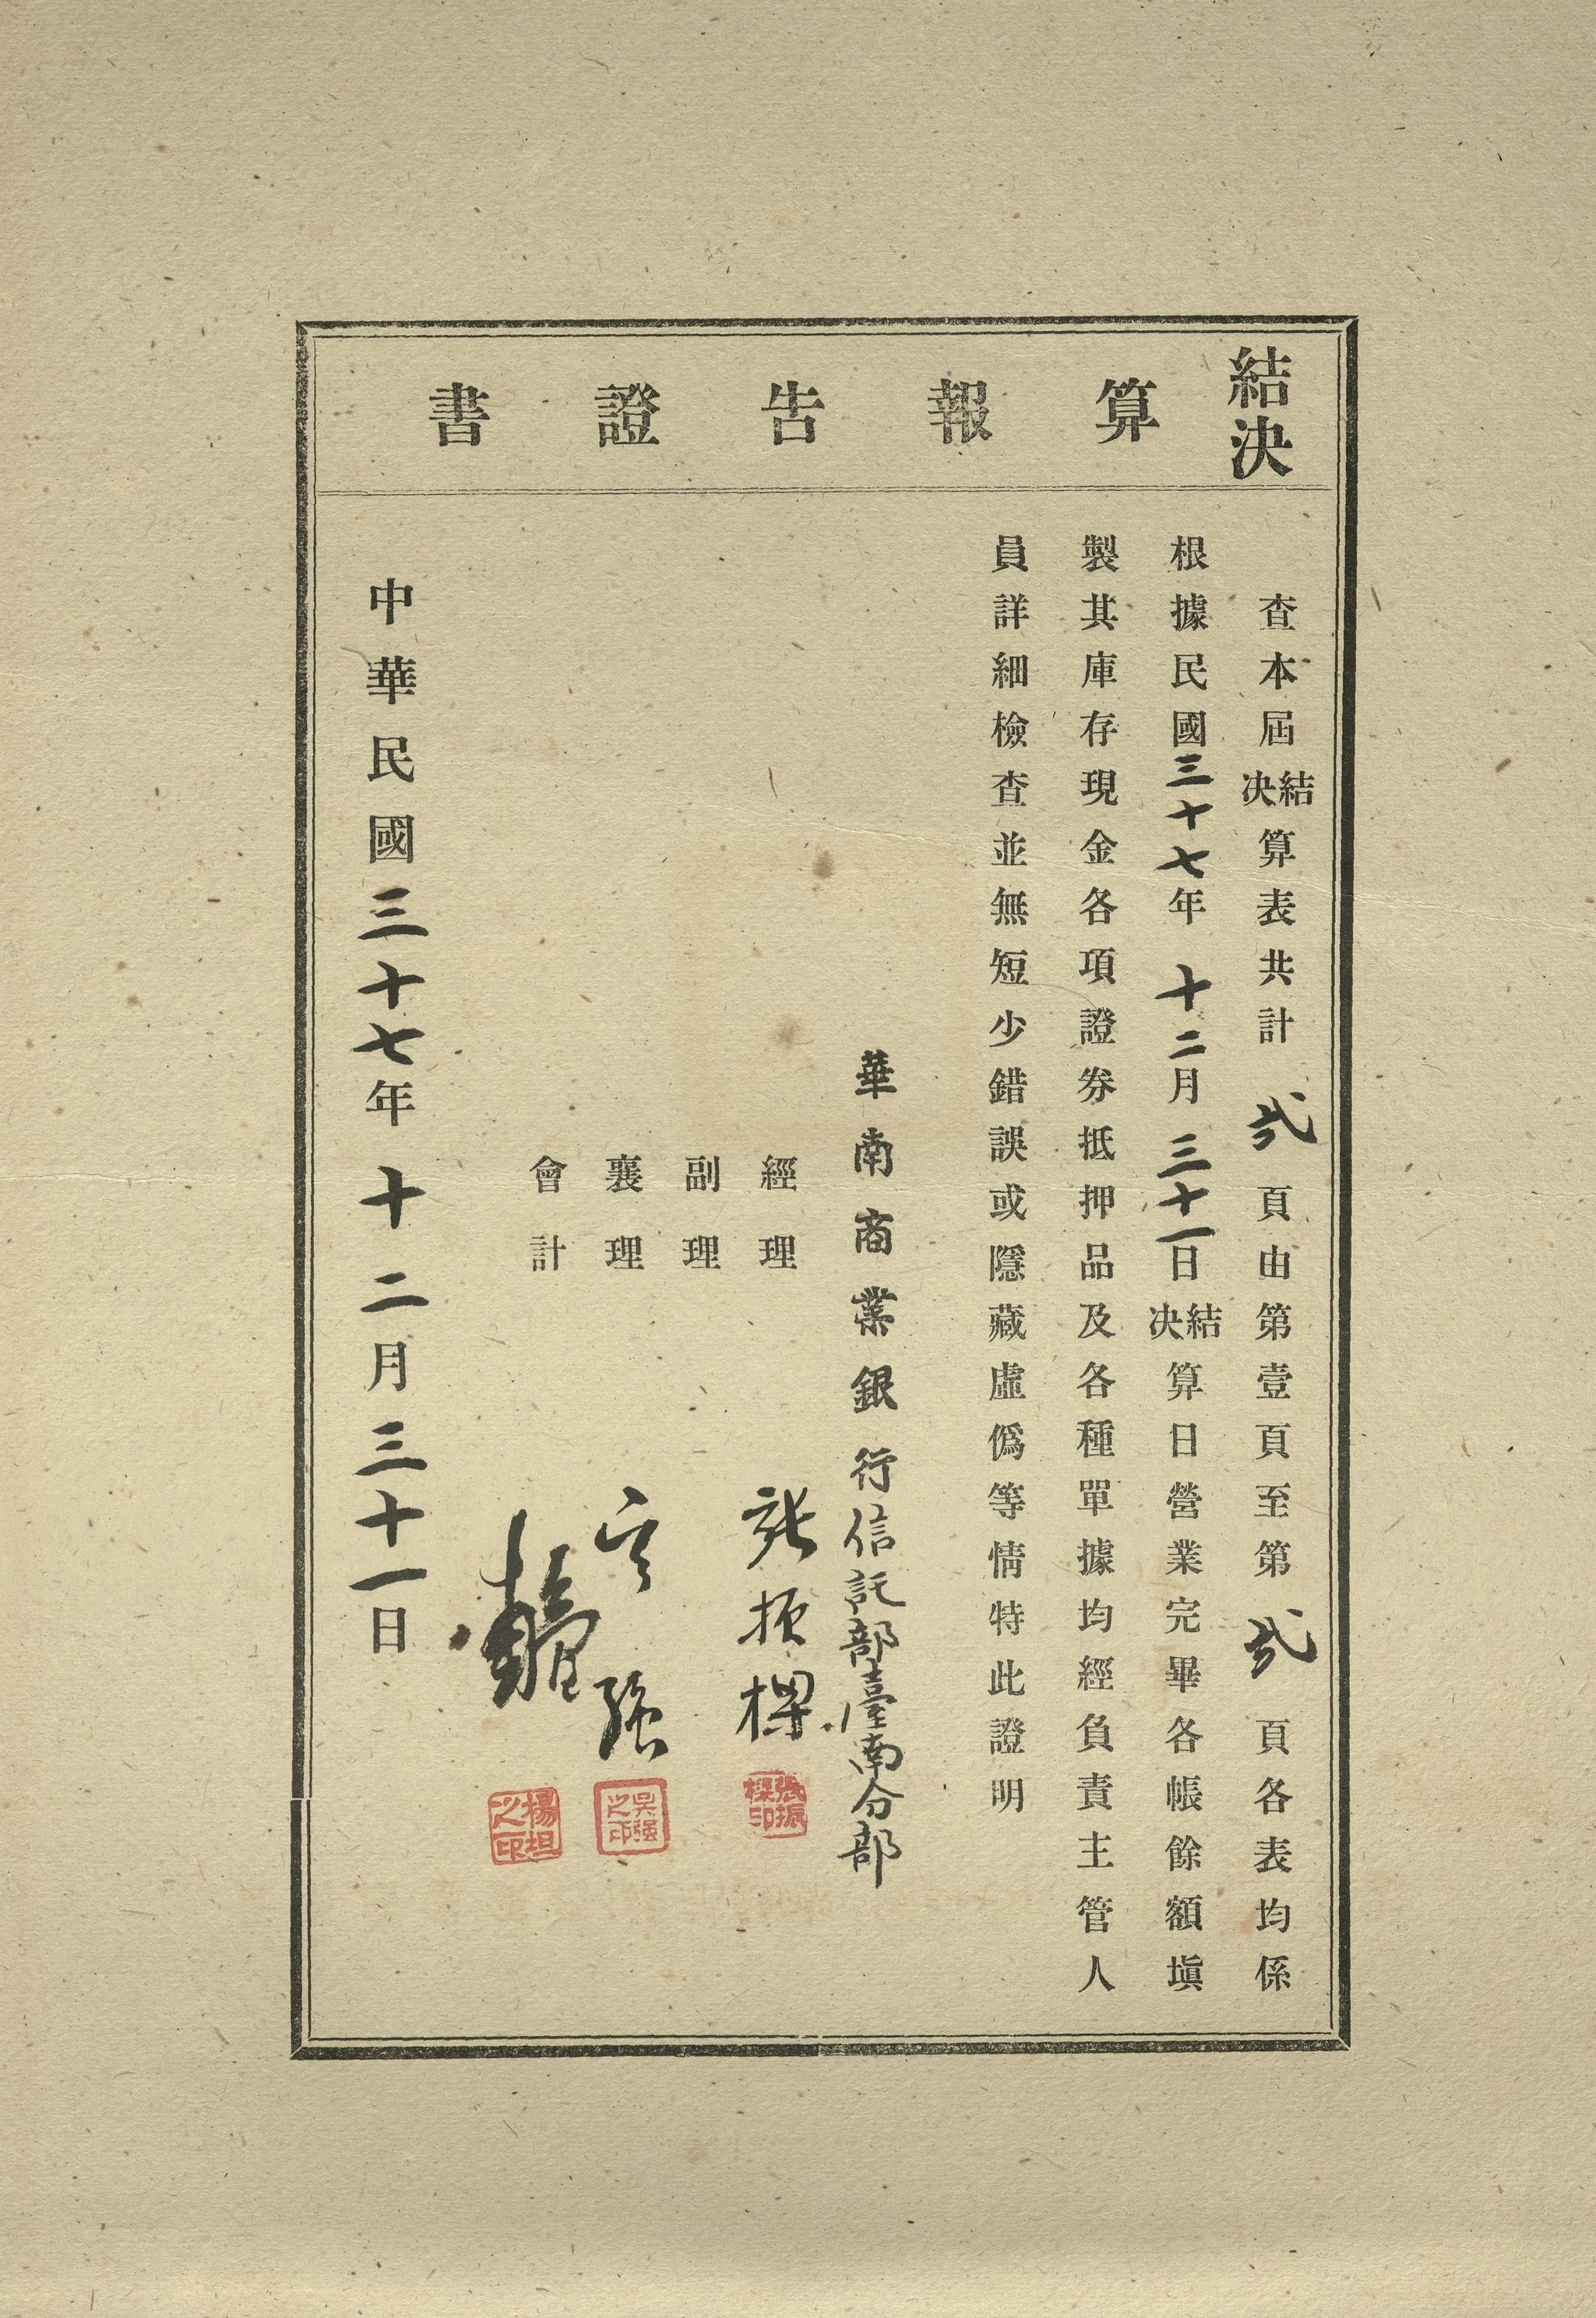 結決算報告證書
查本屆結決算表共計弍頁由第壹頁至第弍頁各表均係
根據民國三十七年十二月三十一日結決算日營業完畢各帳餘額塡
製其庫存現金各項證券抵押品及各種單據均經負責主管人
員詳細檢查並無短少錯誤或隱藏虛僞等情特此證明
華南商業銀行信託部臺南分部
經理 張振樑 張振樑印
副理
襄理 吳強 吳強之印
會計 楊坦之印
中華民國三十七年十二月三十一日